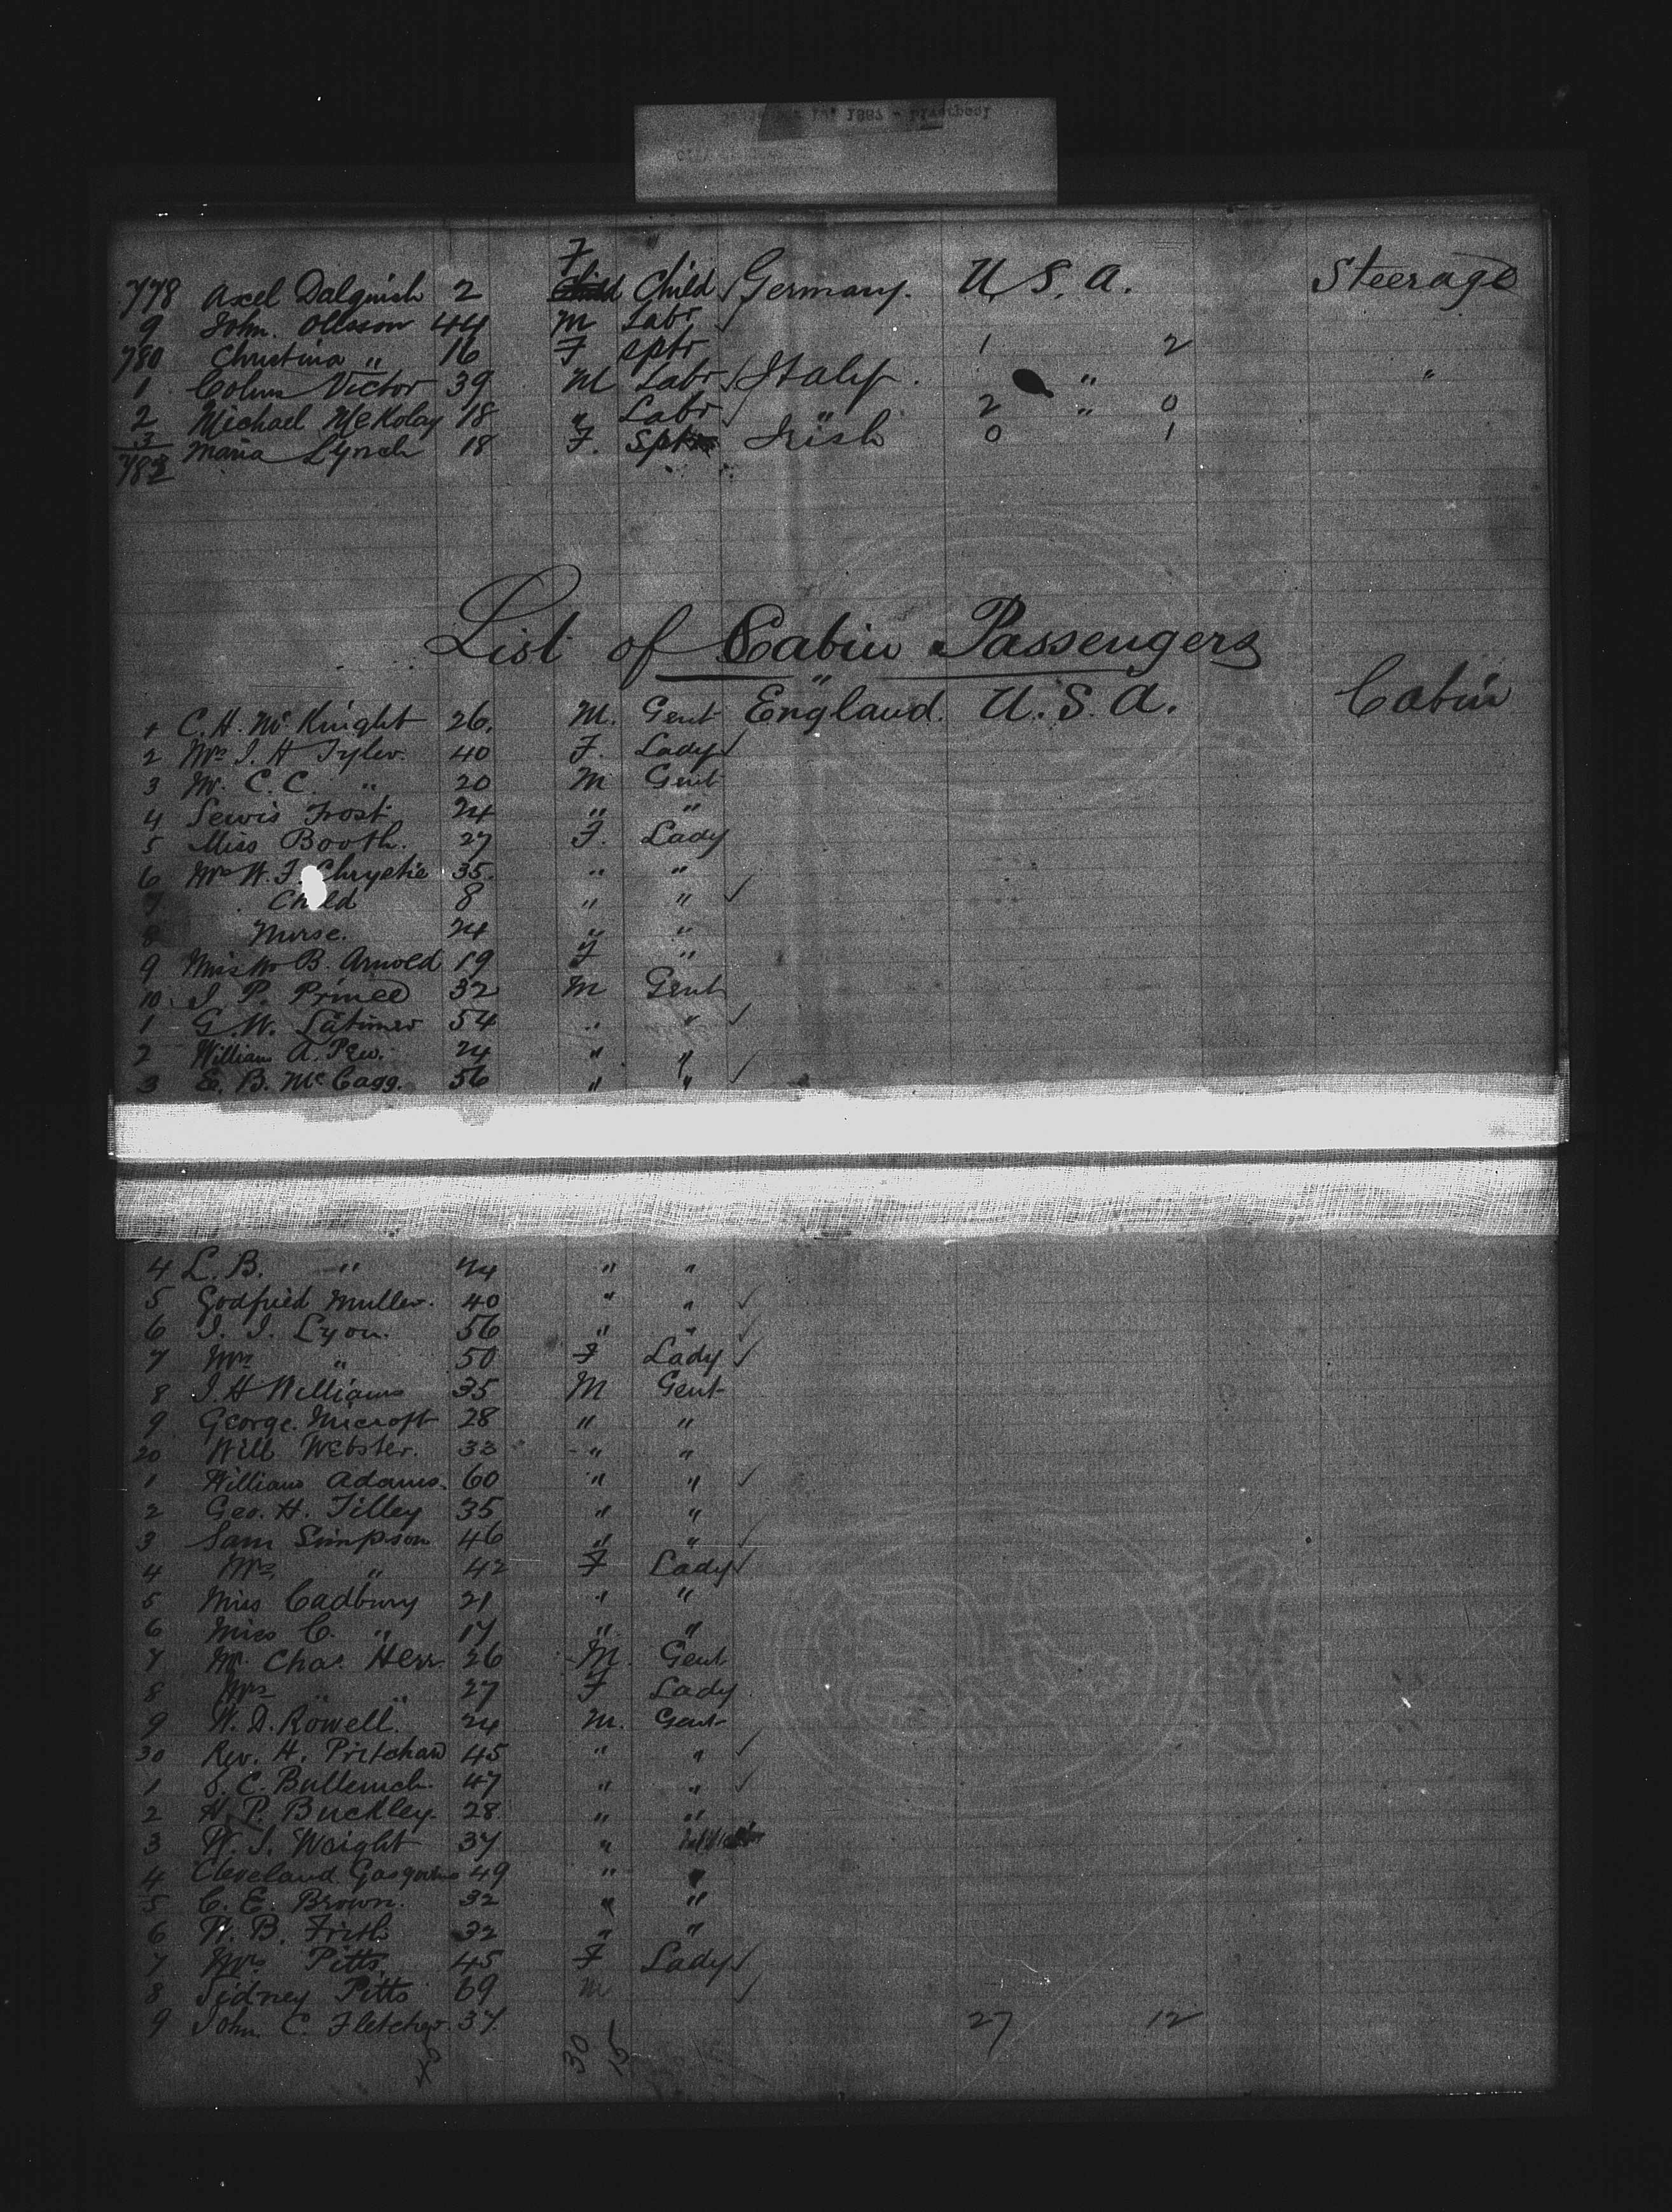 1887 - Liverpool
F
778 Axel Dalquish 2 Child Child Germany. U.S.A. Steerage
9 John. Ollsson 44 M Labr
780 Christina " 16 F Sptr 1 2
1 Colum Victor 39 M Labr Italy. " "
2 Michael McKolay 18 " Labr " 2 " 0
3 Maria Lynch 18 F. Spt Irish 0 1
783
List of Cabin Passengers
1 C. H. Mc Knight 26. M. Gent England. U.S.A. Cabin
2 Mrs J. H Tyler. 40 F. Lady
3 Mr. C. C. " 20 M Gent
4 Lewis Frost 24 " "
5 Miss Booth. 27 F. Lady
6 Mrs W. F. Chrystie 35. " "
7 Child 8 " "
8 Nurse. 24 " "
9 Miss B. Arnold 19 F "
10 J. P. Prince 32 M Gent
1 G. W. Latimer 54 " "
2 William A. Pew. 24 " "
3 E. B. McCagg. 56 " "
4 L. B. " 74 " "
5 Godfried Muller. 40 " "
6 J. J. Lyon. 56 " "
7 Mrs " 50 F Lady
8 J. H Williams 35 M Gent
9 George. Mycroft 28 " "
20 Will Webster. 33 " "
1 William Adams. 60 " "
2 Geo. H. Tilley 35 " "
3 Sam Simpson 46 " "
4 Mrs " 42 F Lady
5 Miss Cadbury 21 " "
6 Miss C. " 17 " "
7 Mr. Chas. Herr. 26 M. Gent
8 Mrs " 27 F Lady
9 W. D. Rowell. 24 M. Gent
30 Rev. H. Pritchard 45 " "
1 S. C. Bullenich. 47 " "
2 H. P. Buckley. 28. " "
3 W. J. Waight 37 "
4 Cleveland 49 " "
5 C. E. Brown. 32 " "
6 W. B. Frith 32 " "
7 Mrs Pitts. 45 F Lady
8 Sidney Pitts 69 M
9 John C. Fletcher. 37. 27 12
30 15